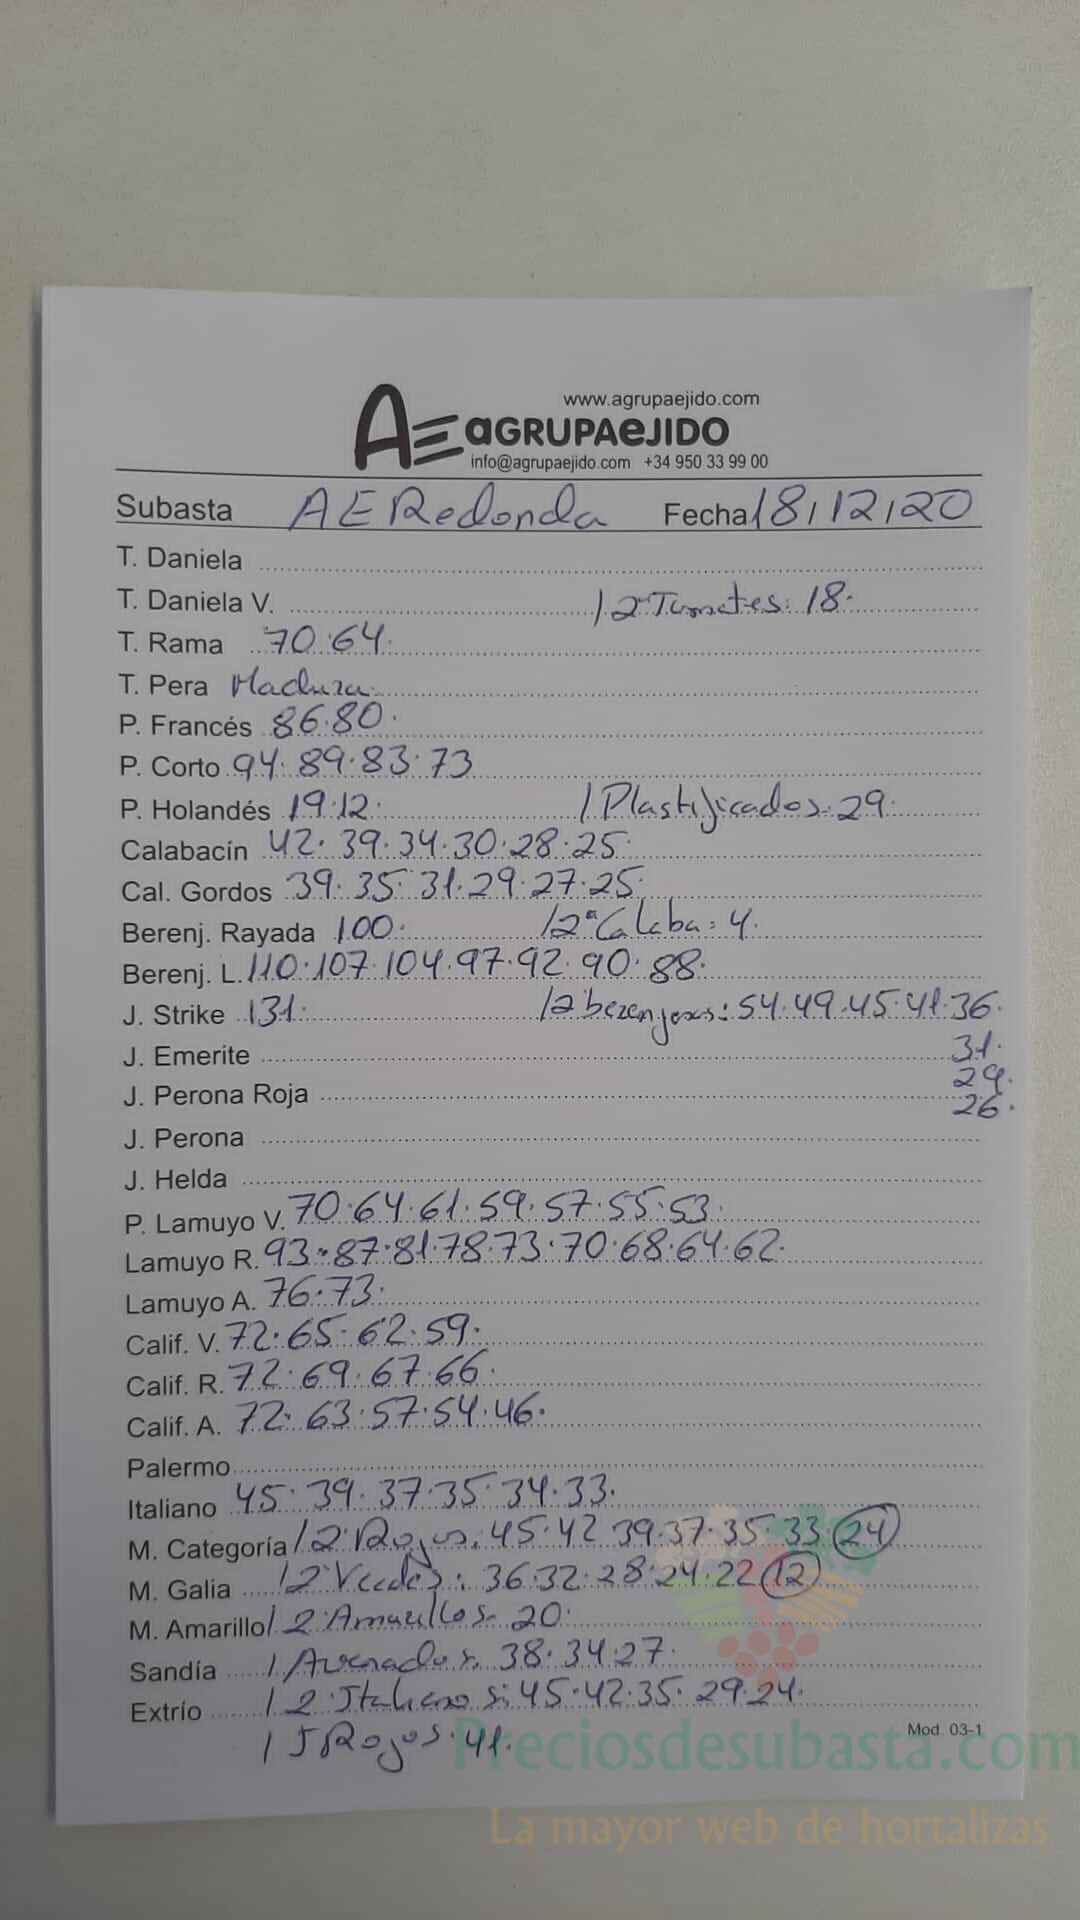 www.agrupaejido.com
AE aGRUPAeJIDO
info@agrupaejido.com +34 950 33 99 00
Subasta AE Redonda Fecha 18/12/20
T. Daniela
T. Daniela V. / 2ª Tomates: 18.
T. Rama 70.64.
T. Pera Madura.
P. Francés 86.80.
P. Corto 94.89.83.73
P. Holandés 19.12. / Plastificados: 29.
Calabacín 42.39.34.30.28.25.
Cal. Gordos 39.35.31.29.27.25.
Berenj. Rayada 100. / 2ª Calaba: 4.
Berenj. L. 110.107.104.97.92.90.88.
J. Strike 131. / 2 berenjenas: 54.49.45.41.36.
J. Emerite 31.
J. Perona Roja 29.
26.
J. Perona
J. Helda
P. Lamuyo V. 70.64.61.59.57.55.53.
Lamuyo R. 93.87.81.78.73.70.68.64.62.
Lamuyo A. 76.73.
Calif. V. 72.65.62.59.
Calif. R. 72.69.67.66.
Calif. A. 72.63.57.54.46.
Palermo
Italiano 45.39.37.35.34.33.
M. Categoría / 2 Rojos: 45.42 39.37.35.33.24
M. Galia / 2 Verdes: 36.32.28.24.22 12
M. Amarillo / 2 Amarillos. 20.
Sandía / Asurcados. 38.34.27.
Extrío / 2 Italianos: 45.42.35.29.24.
/ J Rojos. 41.
Mod. 03-1
Preciosdesubasta.com
La mayor web de hortalizas